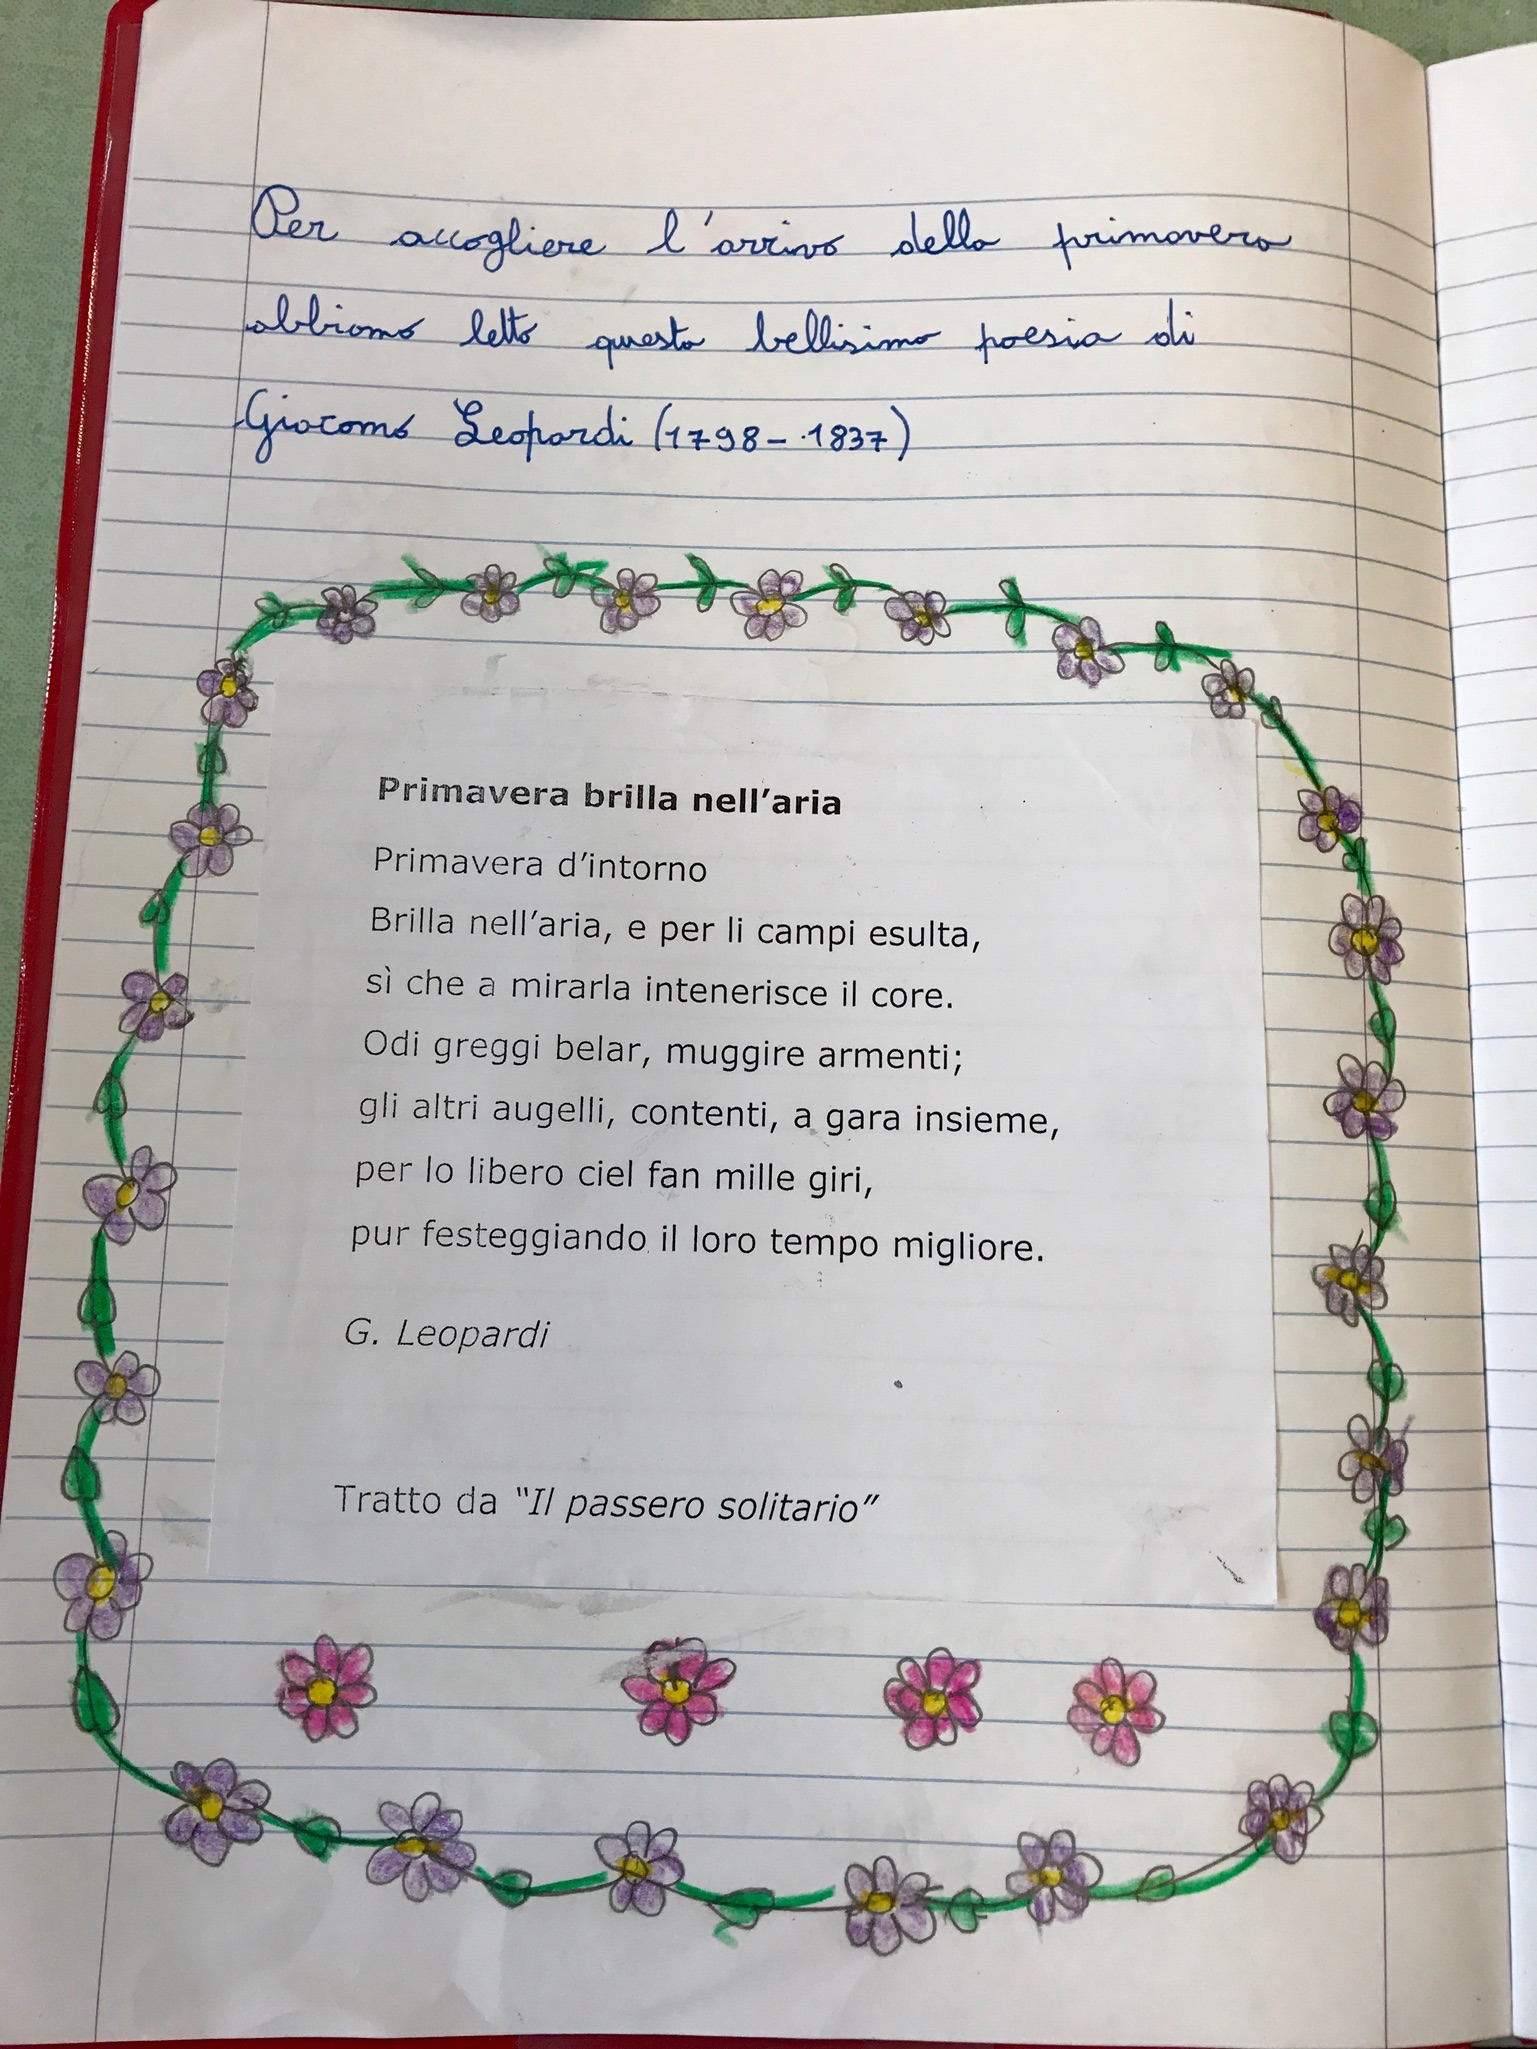 Per accogliere l'arrivo della primavera
abbiamo letto questa bellisima poesia di
Giacomo Leopardi (1798-1837)
Primavera brilla nell'aria
Primavera d'intorno
Brilla nell'aria, e per li campi esulta,
sì che a mirarla intenerisce il core.
Odi greggi belar, muggire armenti;
gli altri augelli, contenti, a gara insieme,
per lo libero ciel fan mille giri,
pur festeggiando il loro tempo migliore.
G. Leopardi
Tratto da "Il passero solitario"